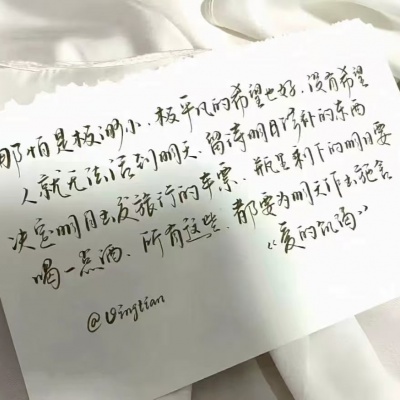 那怕是极渺小、极平凡的希望也好、没有希望
人就无法活到明天、留待明日缝补的东西
决定明日出发旅行的车票、瓶里剩下的明日要
喝一点酒、所有这些、都要为明天作出施舍
《爱的饥渴》